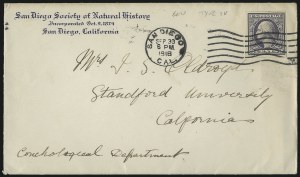 San Diego Society of Natural History
Incorporated Oct. 9, 1874
San Diego, California
SAN DIEGO
SEP 30
8 PM
1918
CAL.
Mrs I. S. Oldroyd
Standford University
Calfornia
Conchological Department